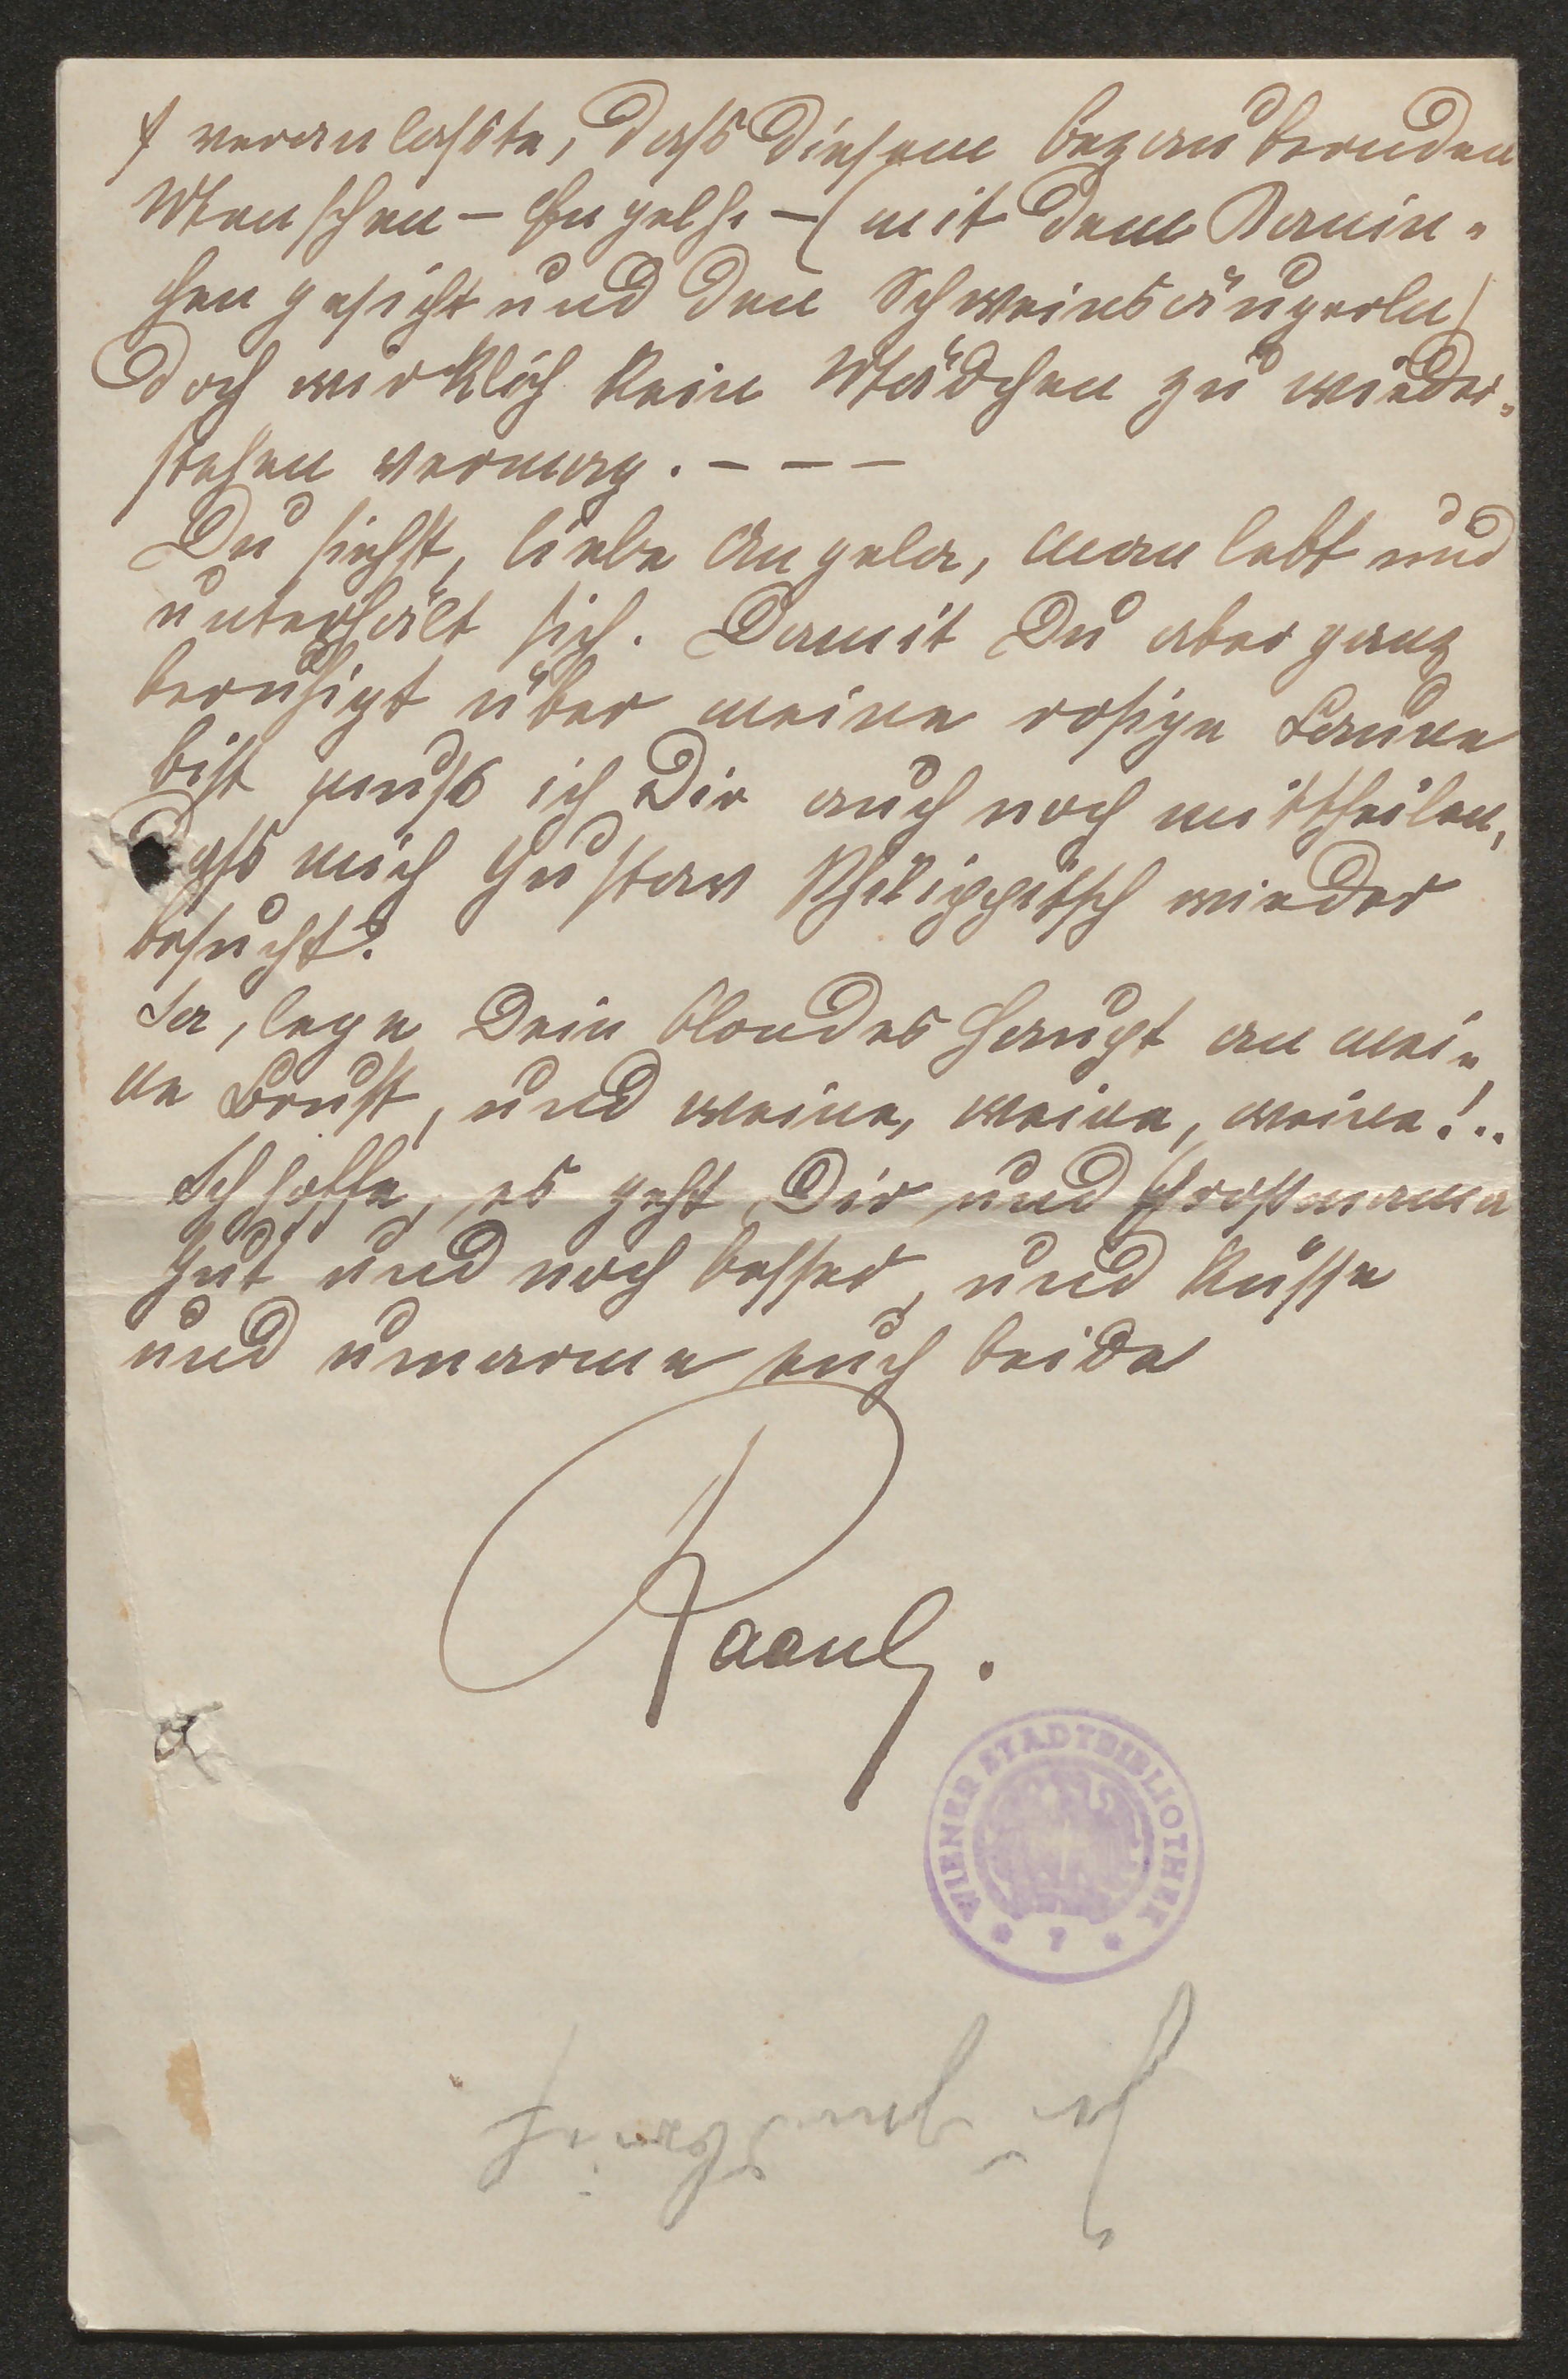 veranlasste, dass diesem bezaubernden
Menschen – Engelh – (mit dem Kanin-
chengesicht und den Schweinsäugerln)
doch wirklich kein Mädchen zu wieder-
stehen vermag. – – –
Du siehst, liebe Angela, man lebt und
unterhält sich. Damit Du aber ganz
beruhigt über meine rosige Laune
bist muss ich Dir auch noch mittheilen,
dass mich Gustav Philippitsch wieder
besucht!
Ja, lege Dein blondes Haupt an mei-
ne Brust, und weine, weine, weine!..
Ich hoffe, es geht Dir und Grossmama
gut und noch besser, und küsse
und umarme euch beide
Raoul.
WIENER STADTBIBLIOTHEK
* 7 *